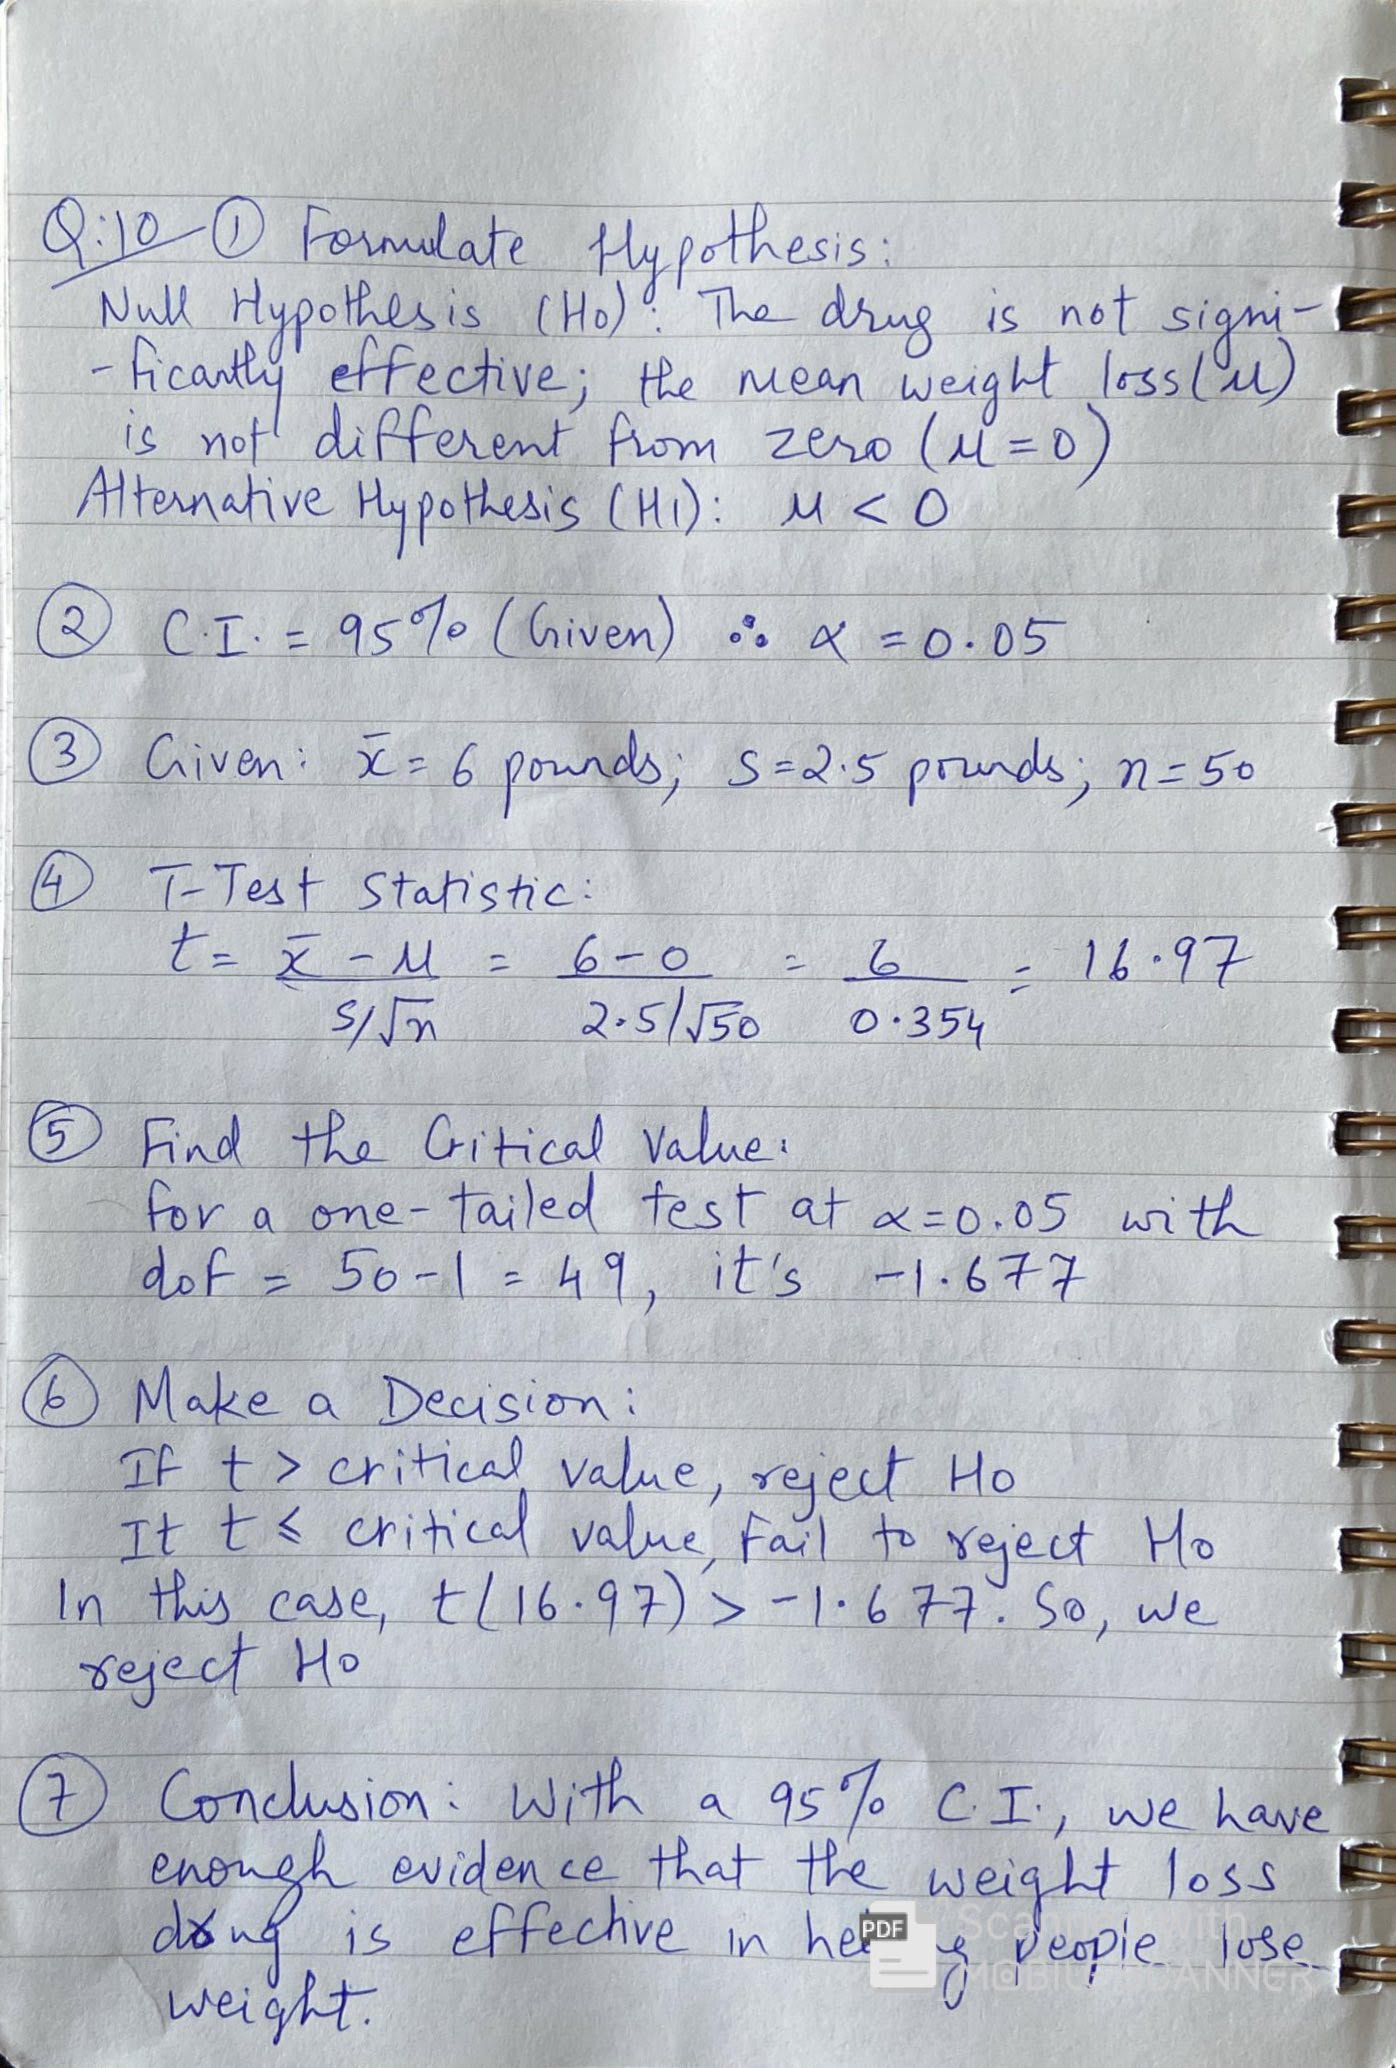 Q:10 ① Formulate Hypothesis:
Null Hypothesis (H0): The drug is not signi-
-ficantly effective; the mean weight loss (μ)
is not different from zero (μ = 0)
Alternative Hypothesis (H1): μ < 0
② C.I. = 95% (Given) ∴ α = 0.05
③ Given: x̄ = 6 pounds; s = 2.5 pounds; n = 50
④ T-Test Statistic:
t = x̄ - μ / s/√n = 6 - 0 / 2.5/√50 = 6 / 0.354 = 16.97
⑤ Find the Critical Value:
for a one-tailed test at α = 0.05 with
dof = 50 - 1 = 49, it's -1.677
⑥ Make a Decision:
If t > critical value, reject H0
If t ≤ critical value, Fail to reject H0
In this case, t(16.97) > -1.677. So, we
reject H0
⑦ Conclusion: With a 95% C.I., we have
enough evidence that the weight loss
drug is effective in people lose
weight.
PDF
Scanned with
MOBILE SCANNER